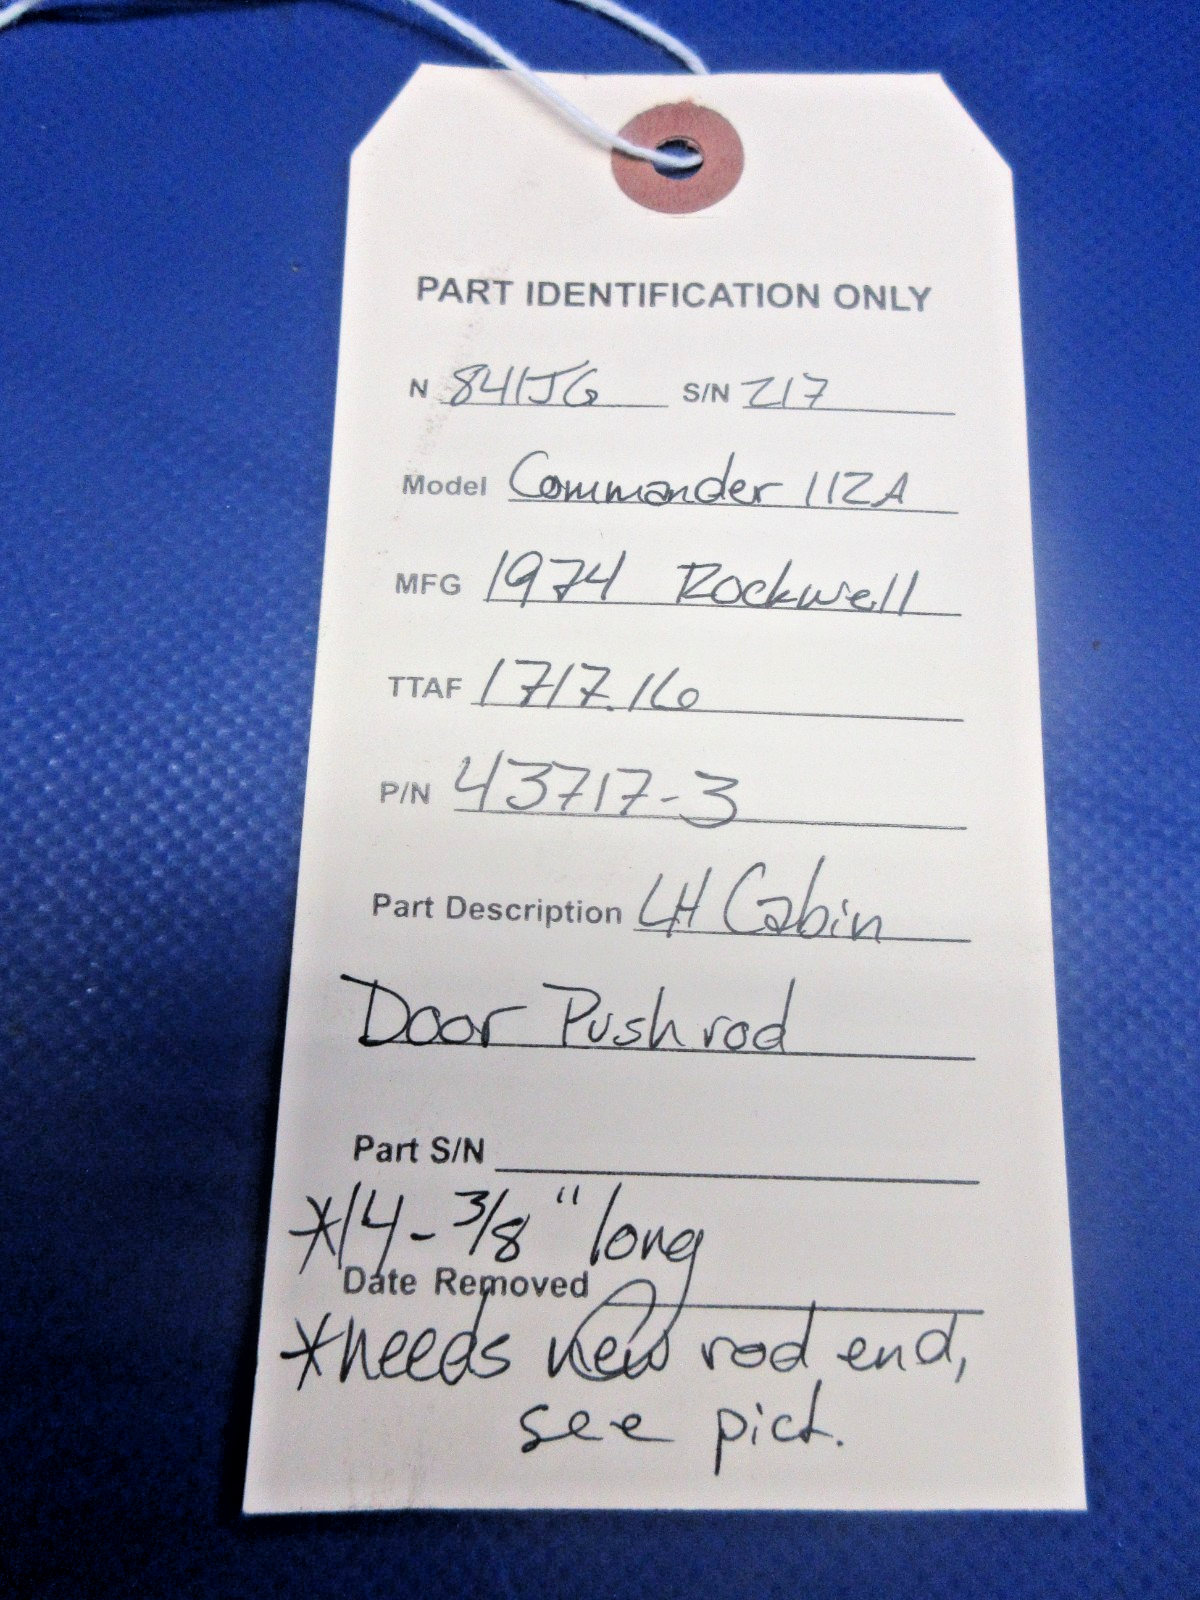 PART IDENTIFICATION ONLY
N 841JG S/N 217
Model Commander 112A
MFG 1974 Rockwell
TTAF 1717.16
P/N 43717-3
Part Description LH Cabin
Door Pushrod
Part S/N
*14-3/8" long
Date Removed
*needs new rod end,
see pict.